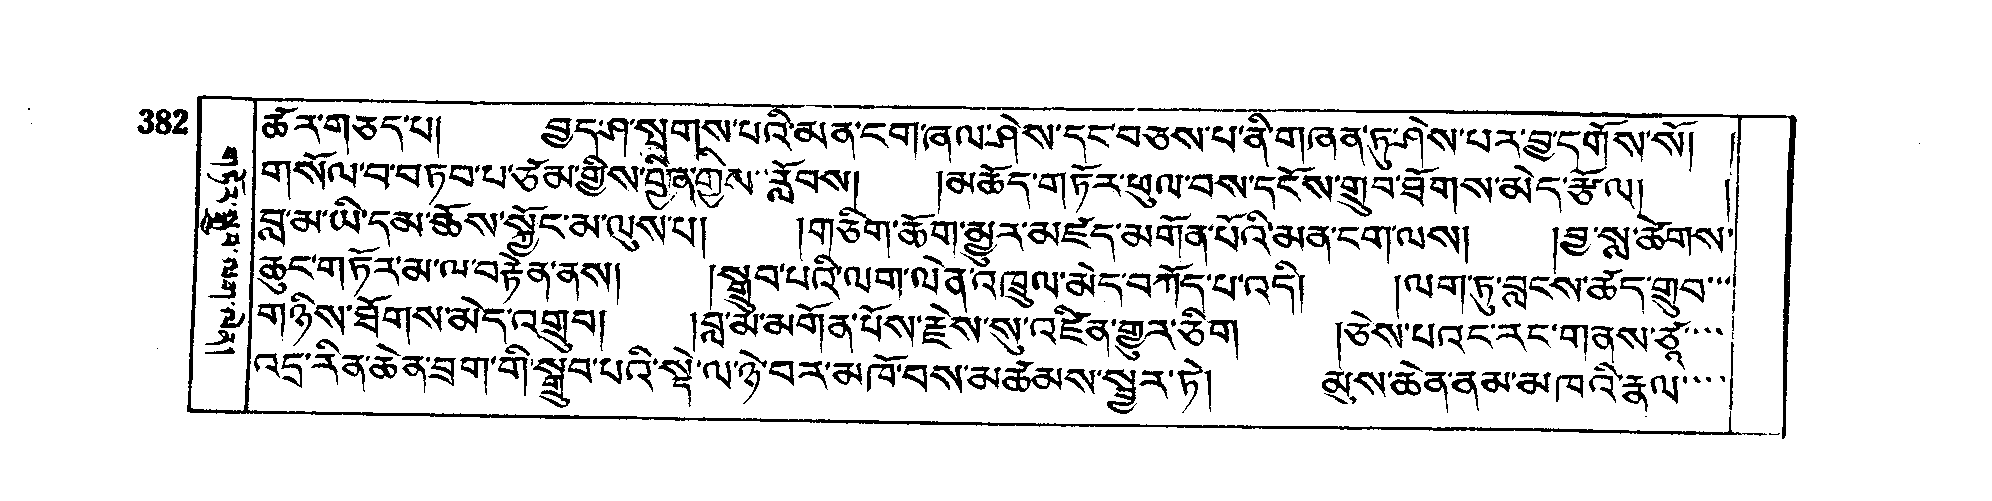 382
ཚར་གཅད་པ། བྱད་ཤ་སྤྲགས་པའི་མན་ངག་ཞལ་ཤེས་དང་བཅས་པ་ནི་གཞན་ཏུ་ཤེས་པར་བྱ་དགོས་སོ། །
གསོལ་བ་བཏབ་པ་ཙམ་གྱིས་བྱིན་གྱིས་རློབས། །མཆོད་གཏོར་ཕུལ་བས་དངོས་གྲུབ་ཐོགས་མེད་རྩོལ། །
བླ་མ་ཡི་དམ་ཆོས་སྐྱོང་མ་ལུས་པ། །གཅིག་ཆོག་མྱུར་མཛད་མགོན་པོའི་མན་ངག་ལས། །བྱ་སླ་ཚེགས་
ཆུང་གཏོར་མ་ལ་བརྟེན་ནས། །སྒྲུབ་པའི་ལག་ལེན་འཁྲུལ་མེད་བཀོད་པ་འདི། །ལག་ཏུ་བླངས་ཚོད་གྲུབ་
གཉིས་ཐོགས་མེད་འགྲུབ། །བླ་མ་མགོན་པོས་རྗེས་སུ་འཛིན་གྱུར་ཅིག །ཅེས་པའང་རང་གནས་ཙཱ
འདྲ་རིན་ཆེན་བྲག་གི་སྒྲུབ་པའི་སྡེ་ལ་ཉེ་བར་མཁོ་བས་མཚམས་སྦྱར་ཏེ། མུས་ཆེན་ནམ་མཁའི་རྣལ